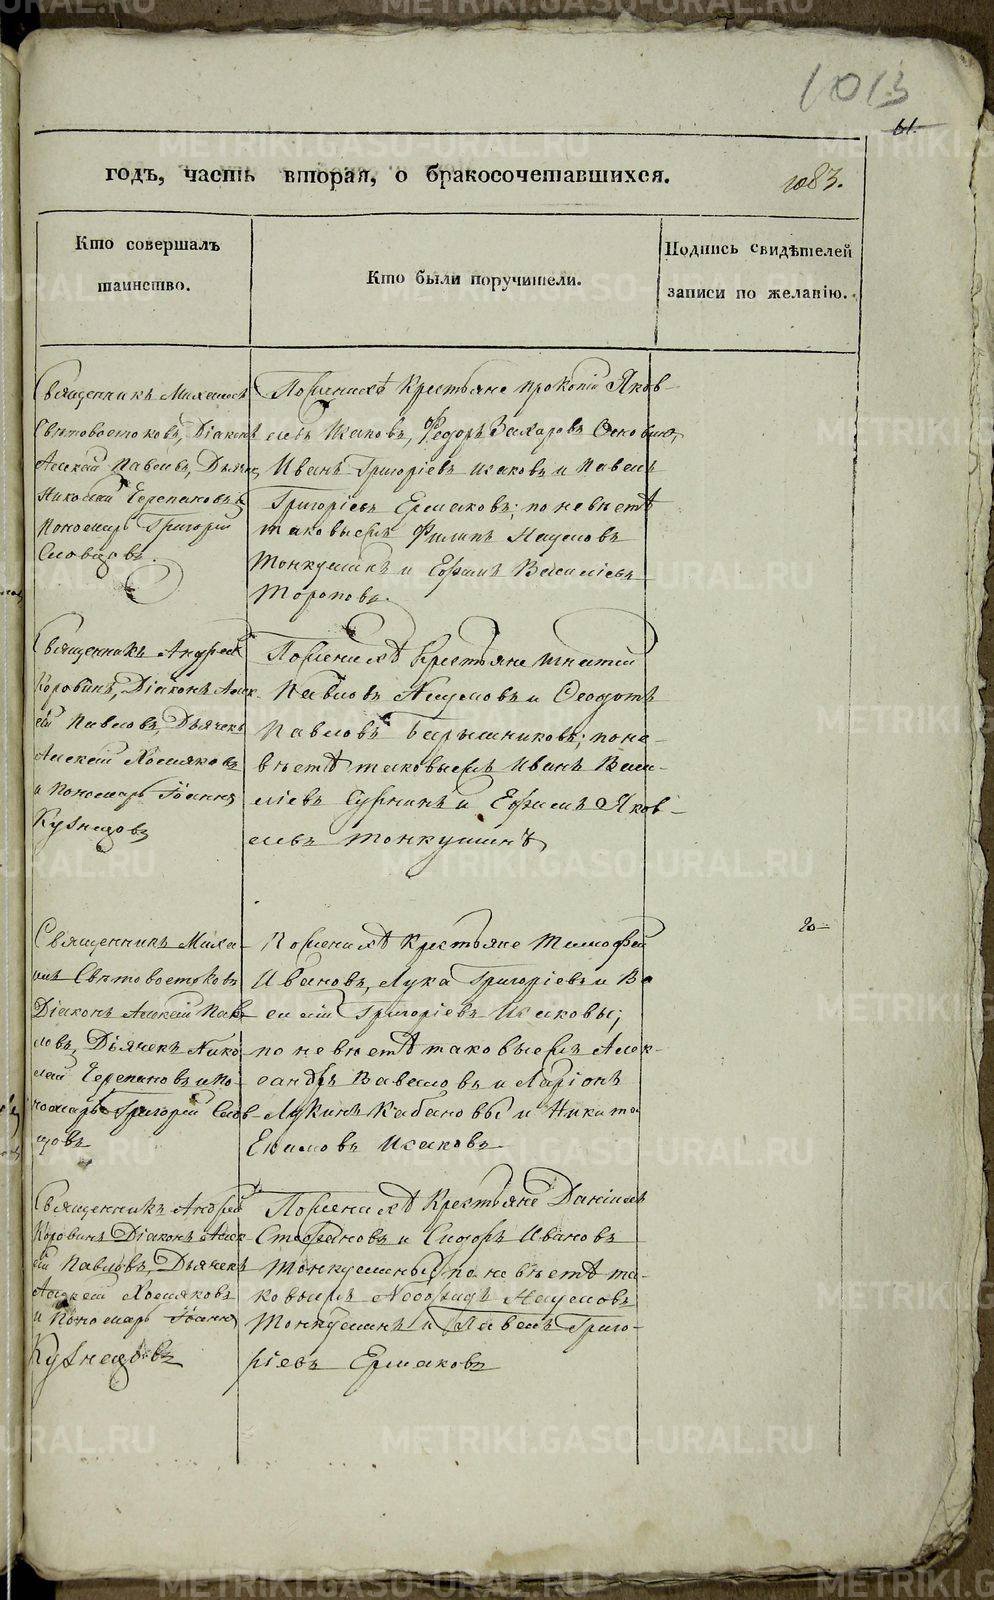 1013
61.
годъ, часть вторая, о бракосочетавшихся.
1083.
Кто совершалъ
таинство.
Кто были поручители.
Подпись свидѣтелей
записи по желанію.
Священникъ Михаилъ
Свѣтовостоковъ, Діаконъ
Алексій Павловъ, Дьячекъ
Николай Черепановъ и
Пономарь Григорій
Словцовъ.
По женихѣ Крестьяне Прокопій Яков
левъ Исаковъ, Ѳедоръ Захаровъ
Иванъ Григоріевъ Исаковъ и Павелъ
Григоріевъ Ермаковъ; по невѣстѣ
таковыежъ Филипъ Наумовъ
Тонкушинъ и Ефимъ Василіевъ
Тороповъ.
Священникъ Андрей
Коровинъ, Діаконъ Алек
сій Павловъ, Дьячекъ
Алексій Хомяковъ
и Пономарь Іоаннъ
Кузнецовъ
По женихѣ Крестьяне Игнатій
Павловъ Наумовъ и Ѳеодотъ
Павловъ Барышниковъ; по не-
вѣстѣ таковыежъ Иванъ Васи-
ліевъ и Ефимъ Яков-
левъ Тонкушинъ
Священникъ Миха-
илъ Свѣтовостоковъ
Діаконъ Алексій Пав
ловъ, Дьячекъ Нико-
лай Черепановъ и По-
номарь Григорій Слов-
цовъ
По женихѣ Крестьяне Тимофей
Ивановъ, Лука Григоріевъ и Ва
силій Григоріевъ Исаковы;
по невѣстѣ таковыежъ Алек-
сандръ Вавиловъ и Ларіонъ
Лукинъ Кабановы и Никита
Екимовъ Исаковъ.
Священникъ Андрей
Коровинъ Діаконъ Алек
сій Павловъ, Дьячекъ
Алексій Хомяковъ
и Пономарь Іоаннъ
Кузнецовъ
По женихѣ Крестьяне Даніилъ
Стефановъ и Сидоръ Ивановъ
Тонкушины, по невѣстѣ та-
ковыежъ Наумовъ
Тонкушинъ и Павелъ Григо-
ріевъ Ермаковъ
METRIKI.GASO-URAL.RU